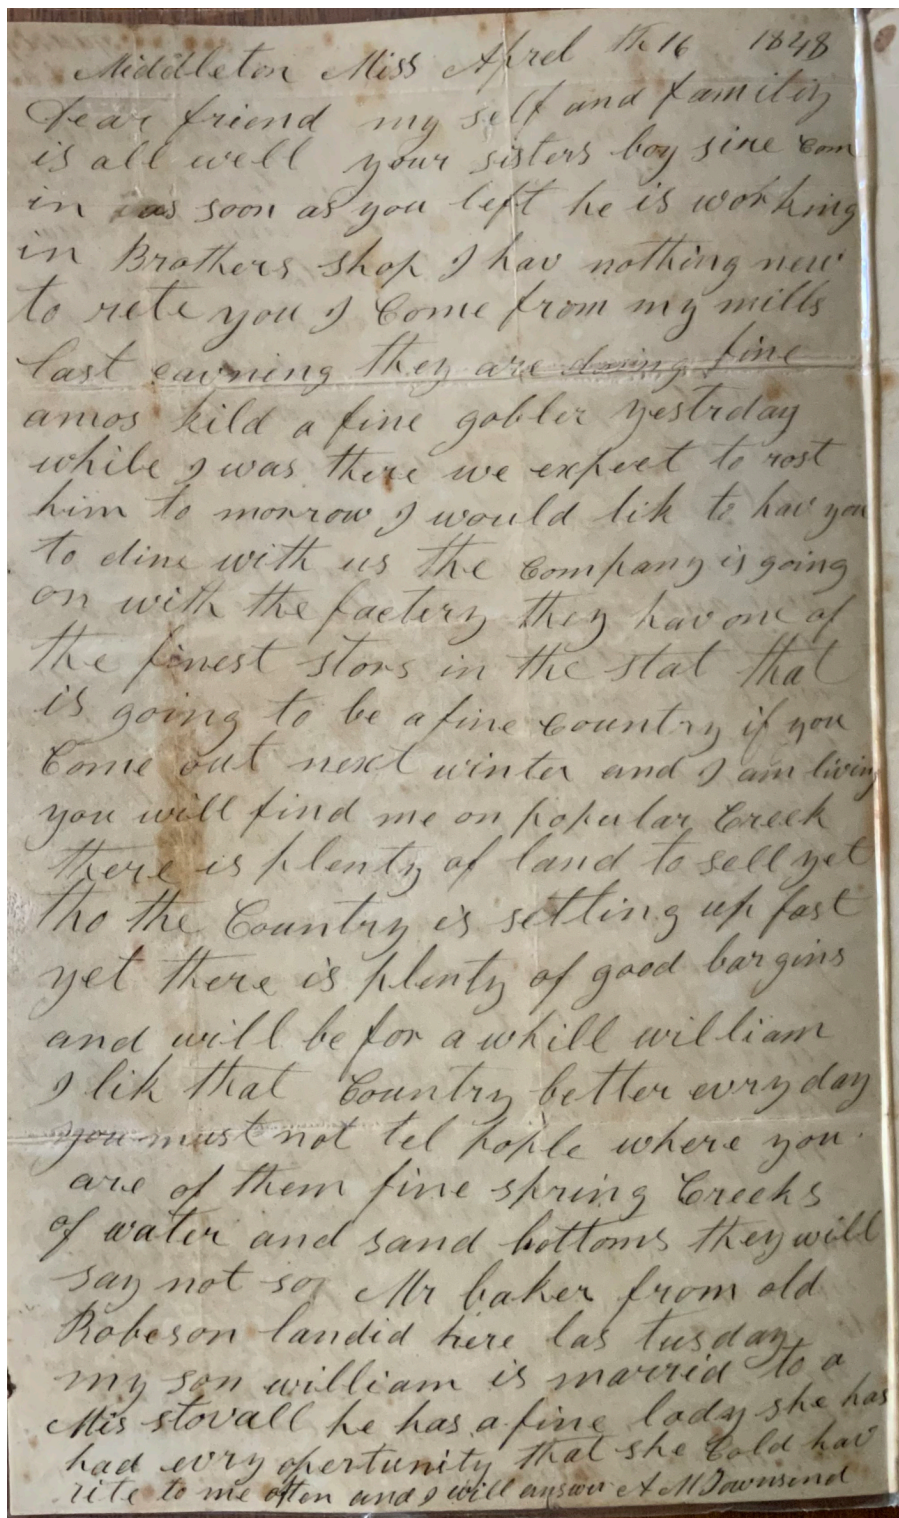 Middleton Miss Aprel th 16 1848
Dear friend my self and familiy
is all well your sisters boy sine com
in as soon as you left he is working
in Brothers shop I hav nothing new
to rete you I Come from my mills
last eavning they are doing fine
amos kild a fine gobler yestrday
while I was there we expect to rost
him to morrow I would lik to hav you
to dine with us the Company is going
on with the factery they hav one of
the finest stors in the stat that
is going to be a fine Country if you
Come out next winter and I am living
you will find me on popular Creek
there is plenty of land to sell yet
tho the Country is setting up fast
yet there is plenty of good bargins
and will be for a whill william
I lik that Country better evry day
you must not tel pople where you
are of them fine spring Creeks
of water and sand bottoms they will
say not so Mr baker from old
Robeson landid here las tusday
my son william is marrid to a
Mis stovall he has a fine lady she has
had evry opertunity that she Cold hav
rite to me often and I will answer A M Townsend